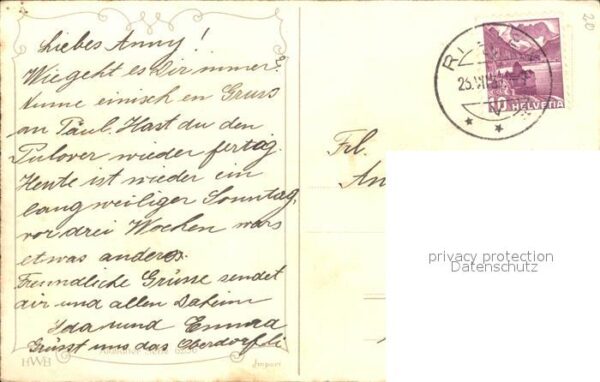 Liebes Anny!
Wie geht es Dir immer.
Nume einisch en Gruss
an Päul. Hast du den
Pulover wieder fertig.
Heute ist wieder ein
langweiliger Sonntag,
vor drei Wochen wars
etwas anders.
Freundliche Grüsse sendet
dir und allen Daheim
Ida und Emma
Grüsst uns das Oberdörfli
HWB
Import
HELVETIA
Frl.
An
privacy protection
Datenschutz
20